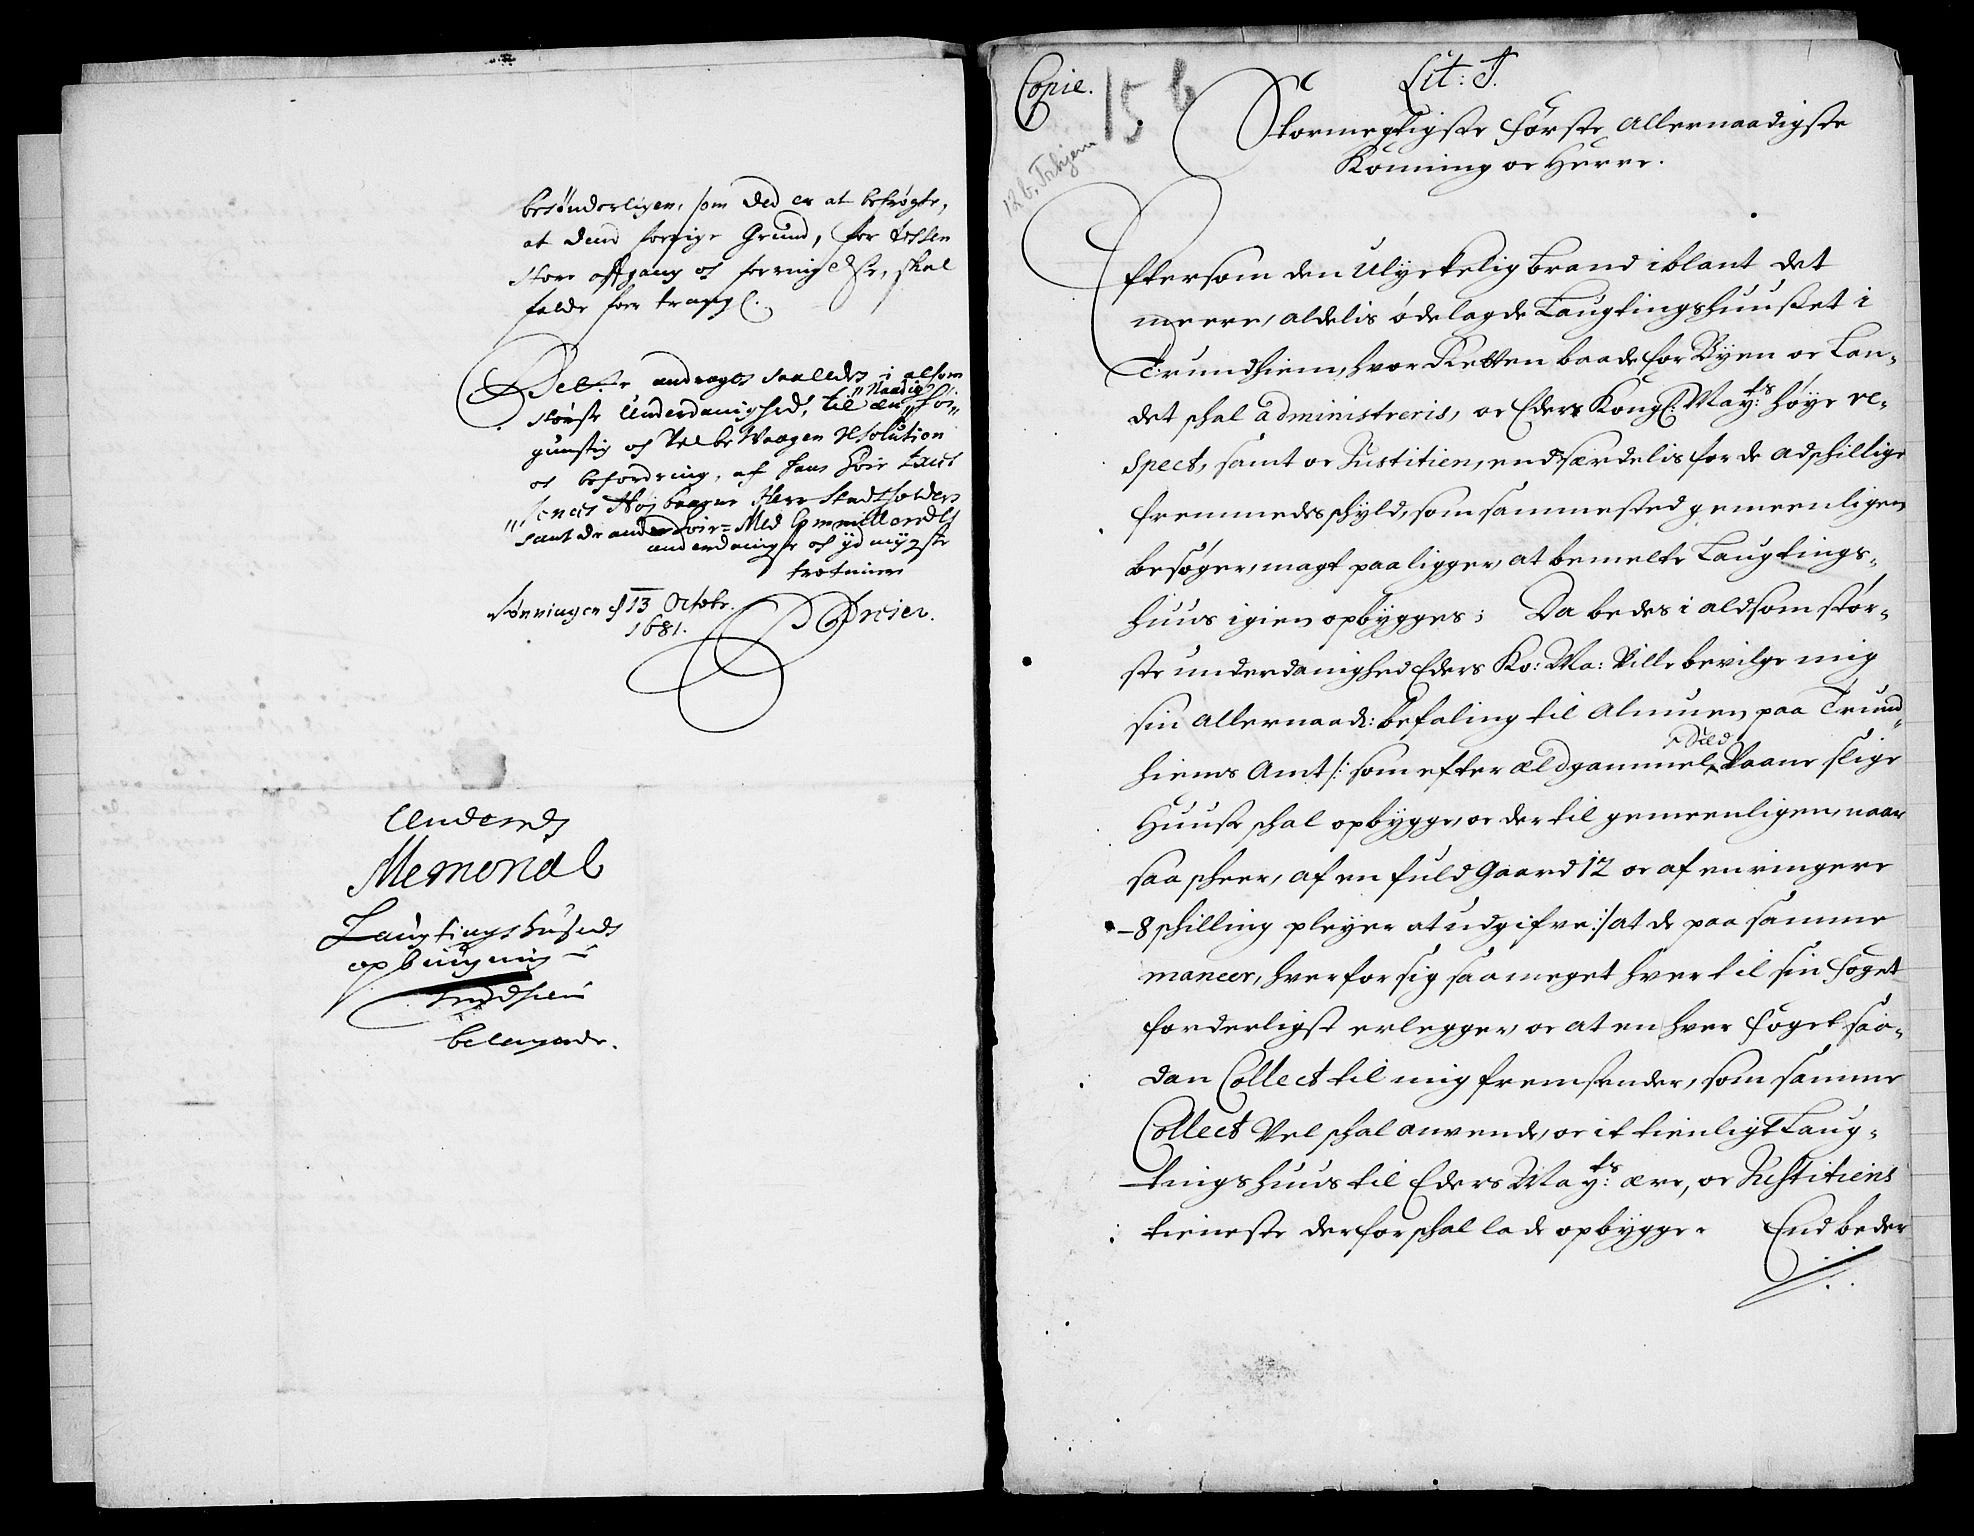 besønderligen, som ded er at befrøgte,
at dend forrige Grund, for
store afgang og , skal
falde for
Dette andrages saaledes i alsom
største Underdanighed, til en Naadig
gunstig og Velbevaagen Resolution
og befordring, af hans
Høybaarne Herr Stadtholders
samt de andre
underdanigste og ydmygste
d 13 Octobr.
1681.
Dreier.
Underd:
Memorial
Laugtingshuseds
opbygning i
Trundhiem
belangende.
Copie.
15 b
12 b. Trhjem
Lit: T.
Stormegtigste Første Allernaadigste
Konning oc Herre.
Eftersom den Ulyckelig brand iblant det
meere, aldelis ødelagde Laugtingshuuset i
Trundhiem, hvor Retten baade for Byen oc Lan-
det schal administreris, oc Eders Kongl: Mayts: høye re-
spect, samt oc Justitien, end særdelis for de adschillige
fremmedes schyld, som sammested gemeenligen
besøger, magt paaligger, at bemelte Laugtings-
huus igien opbygges; Da bedes i aldsom stør-
ste underdanighed Eders Ko: Ma: Ville bevilge mig
sin allernaad: befaling til Almuen paa Trund-
hiems Amt /: som efter ældgammel Sæd Vaane slige
Huuse schal opbygge, oc dertil gemeenligen, naar
saa scheer, af en fuld Gaard 12 oc af en ringere
8 schilling pleyer at udgifve :/ at de paa samme
maneer, hver for sig saa meget hver til sin Foget
forderligst erlegger, oc at en hver Foget saa-
dan Collect til mig fremsender, som samme
Collect Vel schal anvende, oc it tienligt Laug-
tings huus til Eders Mayts: ære, oc Justitiens
tieneste derfor schal lade opbygge. End beder